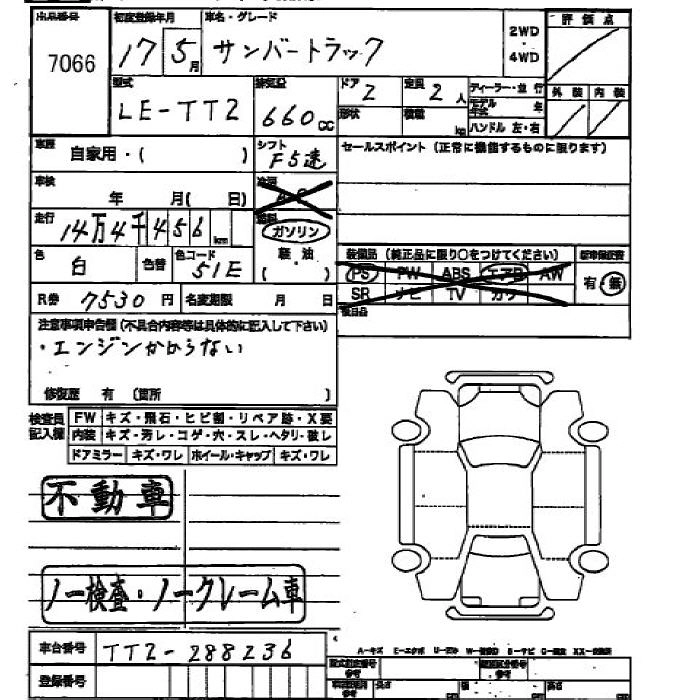 出品番号 初度登録年月 車名・グレード 評価点
7066 17 5月 サンバートラック 2WD・4WD
型式 排気量 ドア 定員 ディーラー・並行 外装 内装
LE-TT2 660cc 2 2人 モデル年式 年
形状 積載 kg ハンドル 左・右
車歴 自家用・( ) シフト F5速 セールスポイント (正常に機能するものに限ります)
車検 年 月( 日) 冷房
走行 14万4千456km 燃料 ガソリン
軽油
( )
色 白 色替 色コード 51E
装備品 (純正品に限り○をつけてください) 新車保証書
PS PW ABS エアB AW 有・無
SR ナビ TV カワ
R券 7530円 名変期限 月 日
注意事項申告欄(不具合内容等は具体的に記入して下さい)
・エンジンかからない
修復歴 有 (箇所 )
検査員記入欄 FW キズ・飛石・ヒビ割・リペア跡・X要
内装 キズ・汚レ・コゲ・穴・スレ・ヘタリ・破レ
ドアミラー キズ・ワレ ホイール・キャップ キズ・ワレ
不動車
ノー検査・ノークレーム車
車台番号 TT2-288236
登録番号